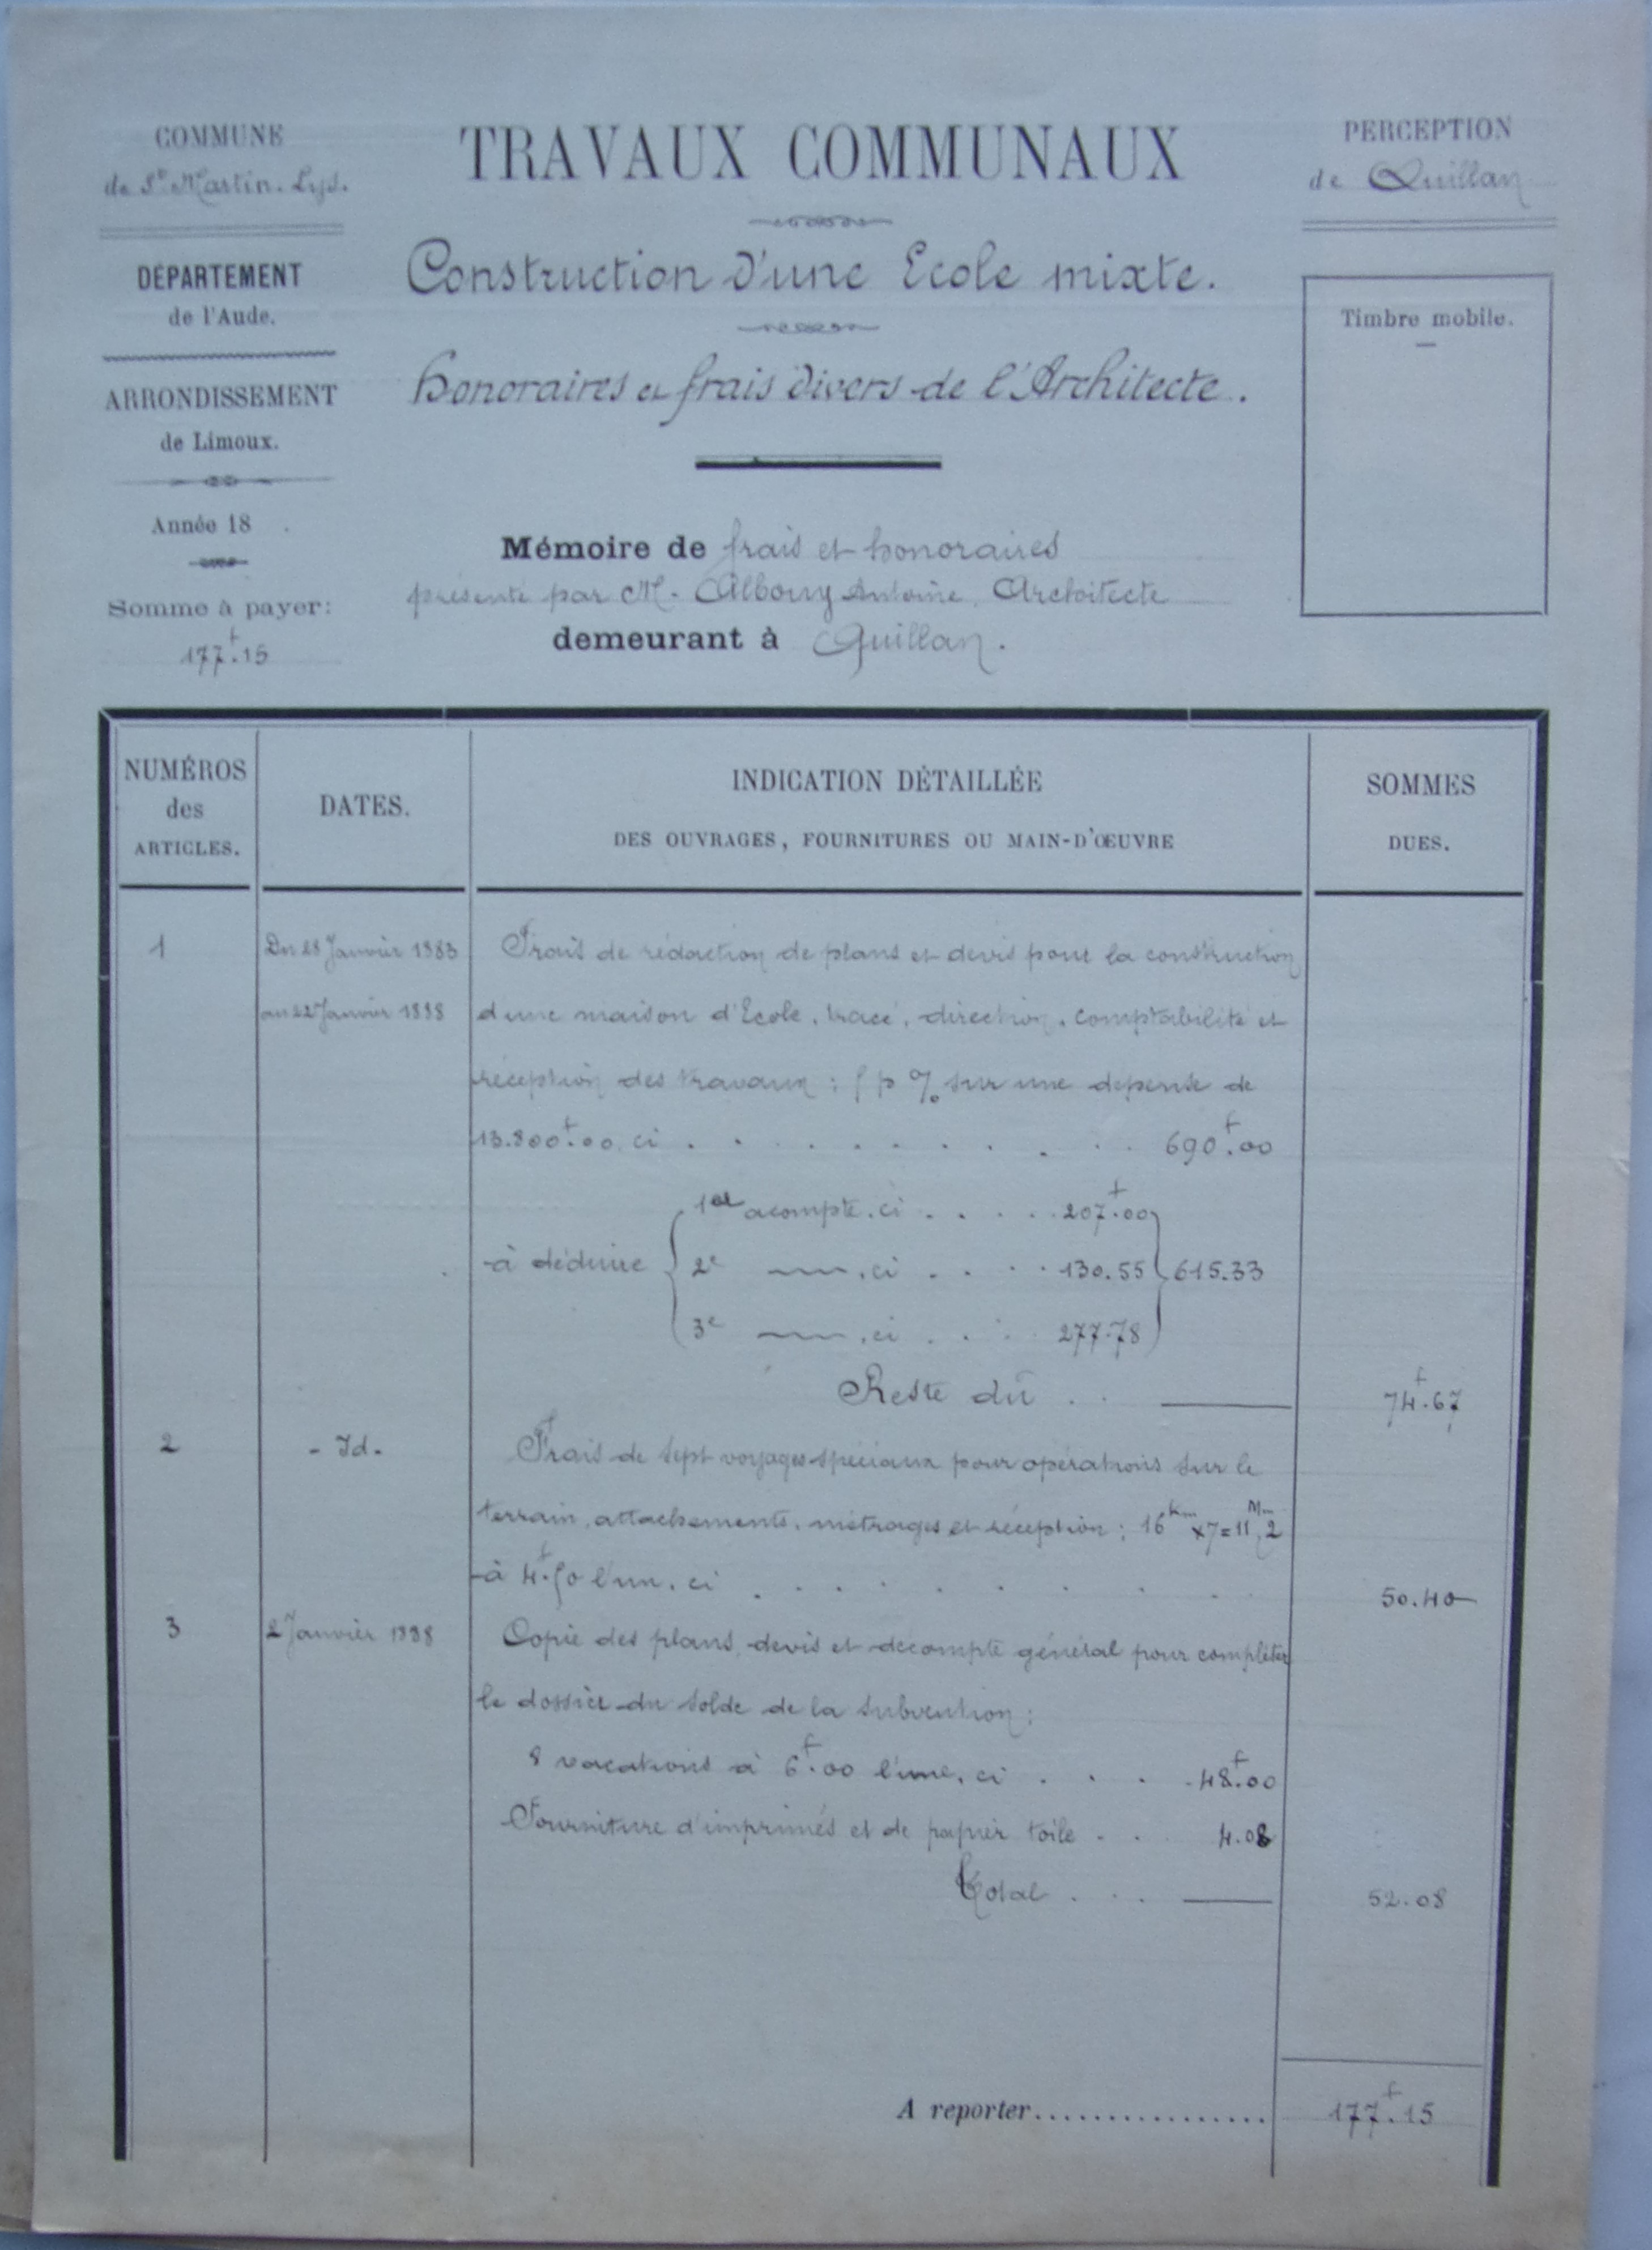 COMMUNE
de St Martin-Lys.
DÉPARTEMENT
de l'Aude.
ARRONDISSEMENT
de Limoux.
Année 18 .
Somme à payer:
177f.15
TRAVAUX COMMUNAUX
Construction d'une Ecole mixte.
honoraires et frais divers de l'Architecte.
Mémoire de frais et honoraires
présenté par M. Albouy Antoine, Architecte
demeurant à Quillan.
PERCEPTION
de Quillan
Timbre mobile.
NUMÉROS
des
ARTICLES.
DATES.
INDICATION DÉTAILLÉE
DES OUVRAGES, FOURNITURES OU MAIN-D'ŒUVRE
SOMMES
DUES.
1 Du 28 Janvier 1883 Frais de rédaction de plans et devis pour la construction
au 22 Janvier 1888 d'une maison d'Ecole, tracé, direction, comptabilité et
réception des travaux : 5 p % sur une dépense de
13.800f.00, ci . . . . . . . . 690f.00
1er acompte, ci . . . . 207f.00
à déduire 2e —, ci . . . . 130.55 615.33
3e —, ci . . . 277.78
Reste dû . . — 74f.67
2 - Id - Frais de sept voyages spéciaux pour opérations sur le
terrain, attachements, métrages et réception ; 16Km x 7 = 11Mm,2
à 4f.50 l'un, ci . . . . . . . . 50.40
3 2 Janvier 1888 Copie des plans, devis et décompte général pour compléter
le dossier du solde de la subvention :
8 vacations à 6f.00 l'une, ci . . . 48f.00
Fourniture d'imprimés et de papier toile . . 4.08
Total . . . — 52.08
A reporter................ 177f.15